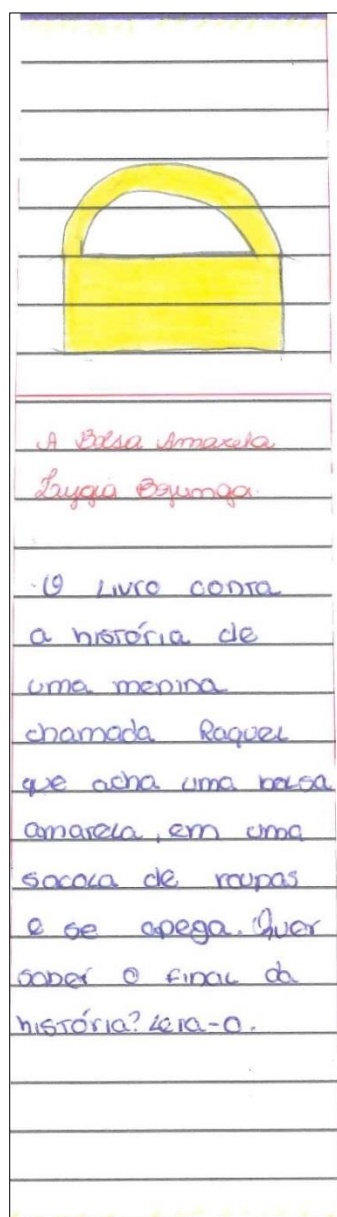 A Bolsa Amarela
Lygia Bojunga.
O Livro conta
a história de
uma menina
chamada Raquel
que acha uma bolsa
amarela, em uma
sacola de roupas
e se apega. Quer
saber o final da
história? Leia-o.